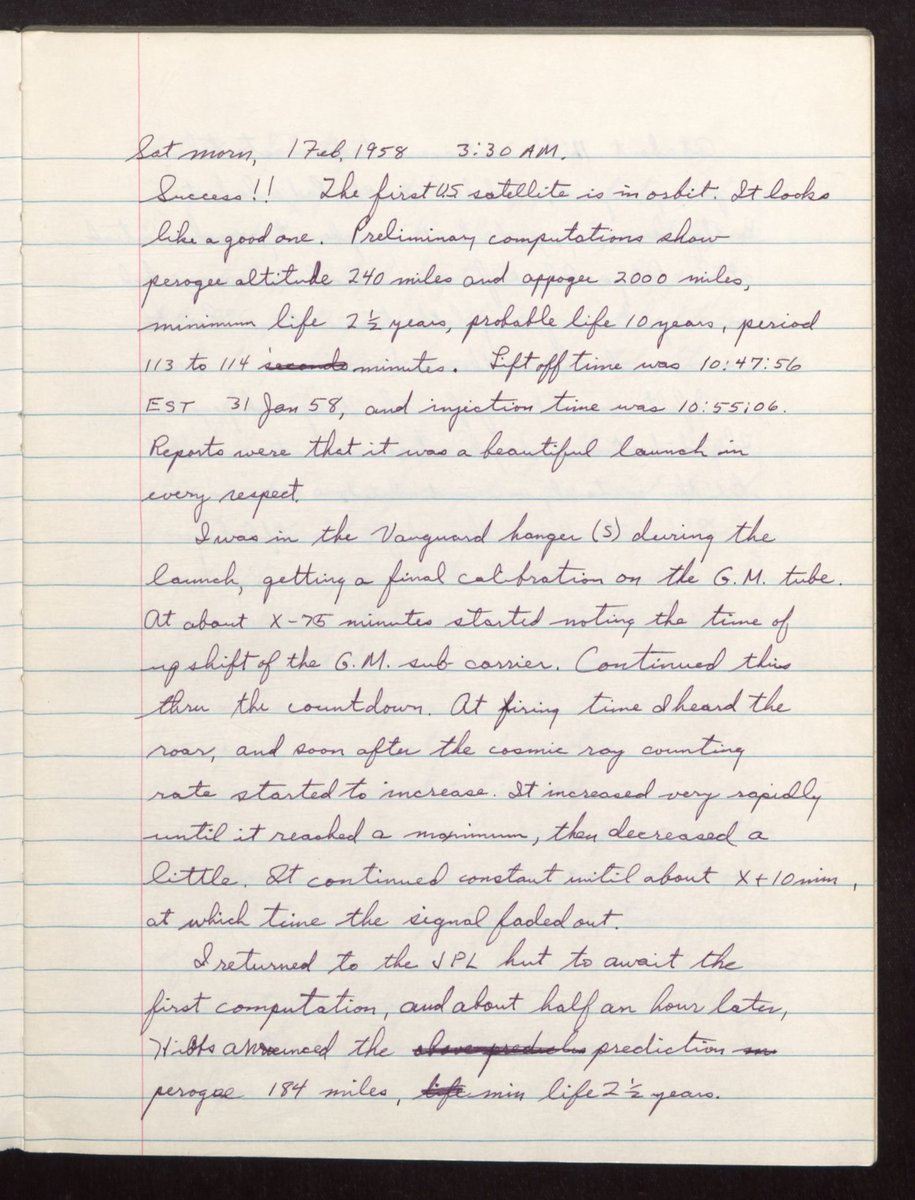 Sat morn, 1 Feb, 1958 3:30 AM.
Success!! The first U.S satellite is in orbit. It looks
like a good one. Preliminary computations show
perogee altitude 240 miles and appogee 2000 miles,
minimum life 2 ½ years, probable life 10 years, period
113 to 114 seconds minutes. Lift off time was 10:47:56
EST 31 Jan 58, and injection time was 10:55:06.
Reports were that it was a beautiful launch in
every respect.
I was in the Vanguard hanger (S) during the
launch, getting a final calibration on the G.M. tube.
At about X-75 minutes started noting the time of
upshift of the G.M. sub carrier. Continued this
thru the countdown. At firing time I heard the
roar, and soon after the cosmic ray counting
rate started to increase. It increased very rapidly
until it reached a maximum, then decreased a
little. It continued constant until about X+10 min,
at which time the signal faded out.
I returned to the JPL hut to await the
first computation, and about half an hour later,
Hibbs announced the prediction
perogee 184 miles, life min life 2 ½ years.